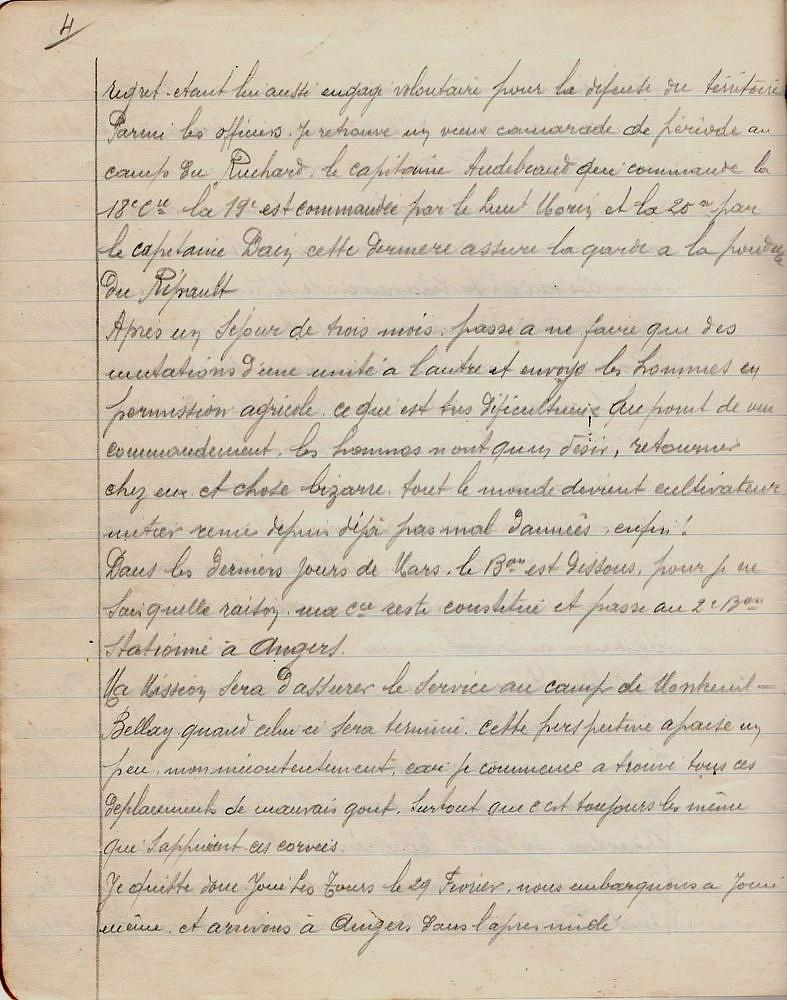 4
regret. etant lui aussi engagé volontaire pour la defense du térritoire
Parmi les officiers. Je retrouve un vieux camarade de période au
camp du Ruchard. le capitaine Audebeaud qui commande la
18e Cie la 19e est commandée par le Lieut Morin et la 20e par
le capitaine Dain cette derniere assure la garde a la poudrie
du Ripault
Apres un Séjour de trois mois. passe a ne faire que des
mutations d'une unité a l'autre et envoyé les hommes en
permission agricole. ce qui est tres dificultueux du point de vue
commandement. les hommes n'ont qu'un désir, retourner
chez eux. et chose bizarre. tout le monde devient cultivateur
metier renié depuis déjà pas mal d'années, enfin!
Dans les derniers Jours de Mars. le Bon est dissous. pour je ne
Sais quelle raison. ma Cie reste constitué et passe au 2e Bon
Stationné à Angers.
Ma Mission Sera d'assurer le Service au camp de Montreuil-
Bellay. quand celui ci sera terminé. cette perspective apaise un
peu, mon mécontentement, car je commence a trouvé tous ces
deplacements de mauvais gout. Surtout que c'est toujours les même
qui S'appuient ces corvées.
Je quitte donc Joué Les Tours le 29 Fevrier, nous embarquons a Joué
même. et arrivons à Angers dans l'apres midi